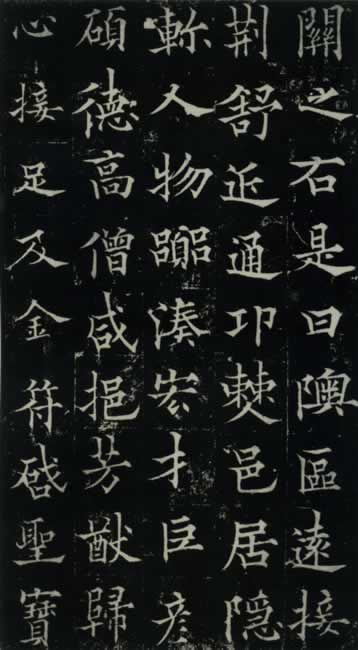 關之右是曰隩區遠接
荆舒近通邛僰邑居隱
軫人物湊宏才巨彦
碩德高僧咸挹芳猷歸
心接足及金符啓聖寶